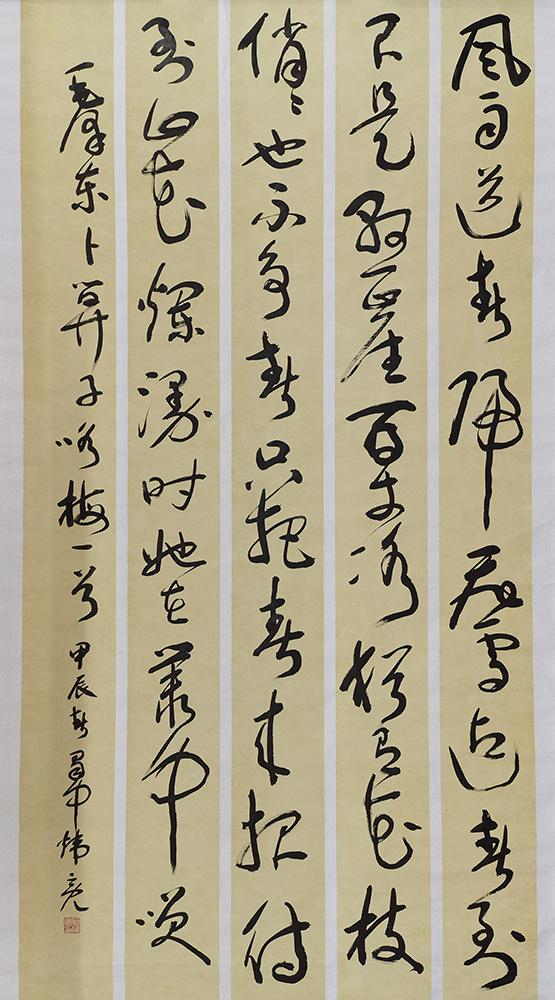 风雨送春歸飛雪迎春到
已是懸崖百丈冰猶有花枝
俏俏也不争春只把春来报待
到山花爛漫时她在叢中笑
毛澤东卜算子咏梅一首 甲辰春蜀中炜亮